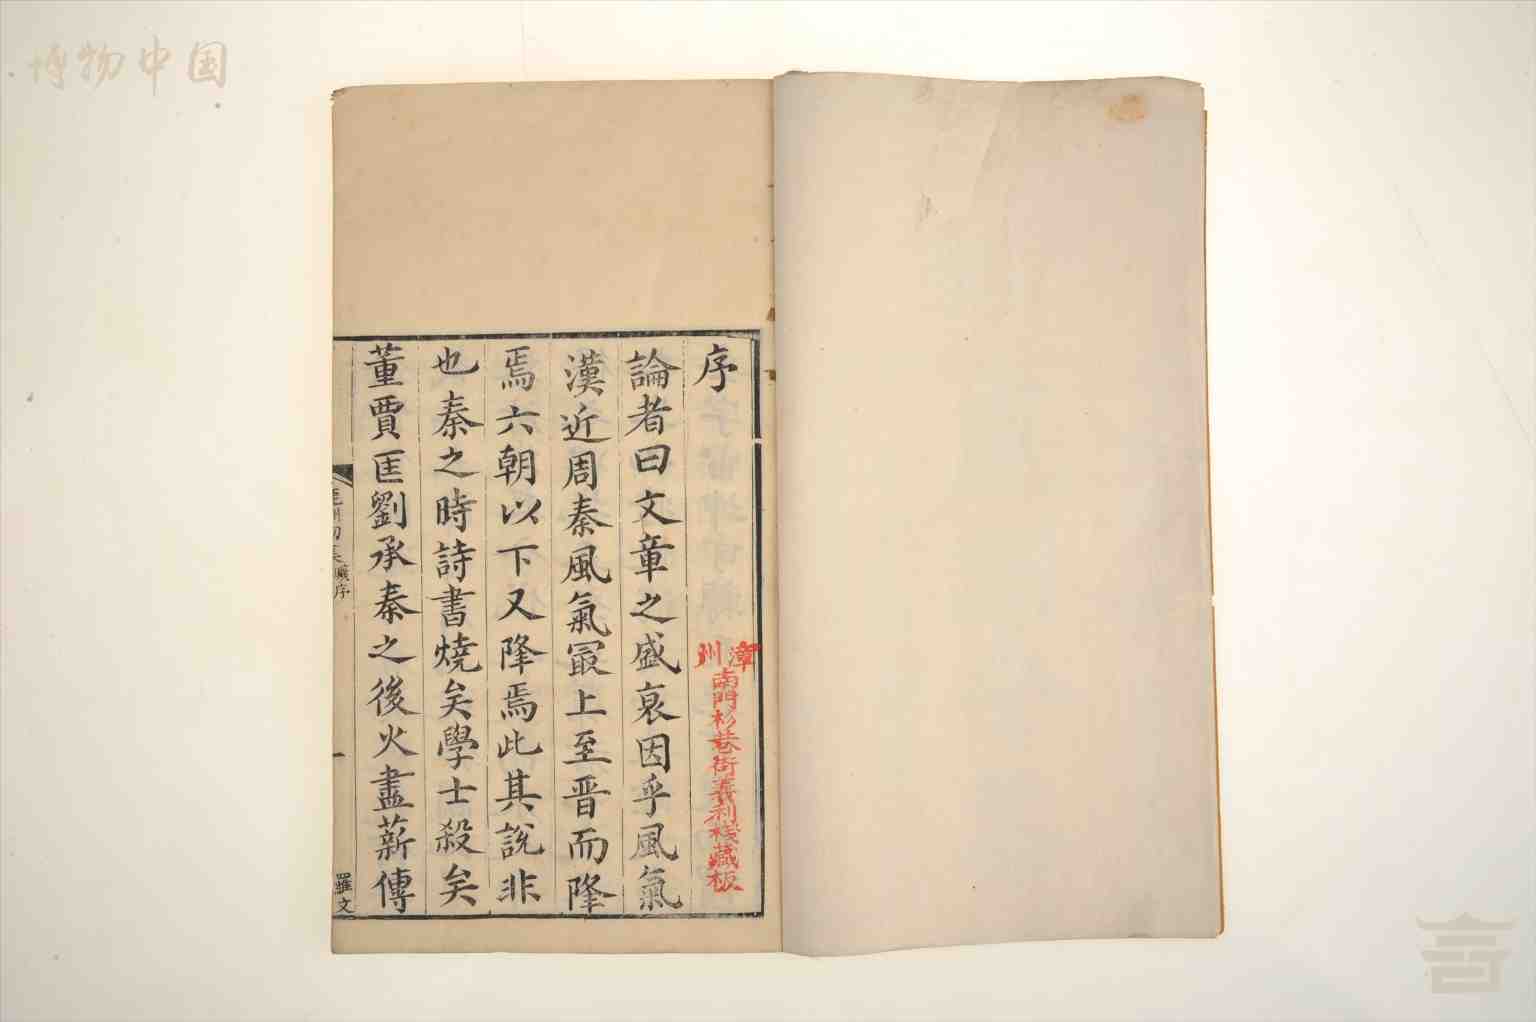 博物中国
序
漳州南門杉巷街義利棧藏板
論者曰文章之盛衰因乎風氣
漢近周秦風氣冣上至晋而隆
焉六朝以下又隆焉此其說非
也秦之時詩書燒矣學士殺矣
董賈匡劉承秦之後火盡薪傳
序
一
羅文